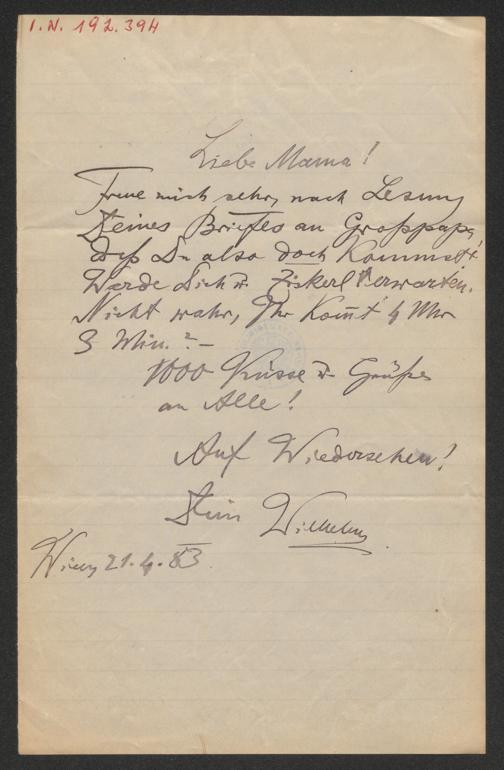 I.N. 192.394
Liebe Mama!
Freue mich sehr, nach Lesung
Deines Briefes an Grosspapa,
daß Du also doch kommst!
Werde Dich u. Ziskerl erwarten.
Nicht wahr, Ihr kom̄t 4 Uhr
3 Min.? –
1000 Küsse u. Grüße
an Alle!
Auf Wiedersehen!
Dein Wilhelm
Wien, 21.4.83.